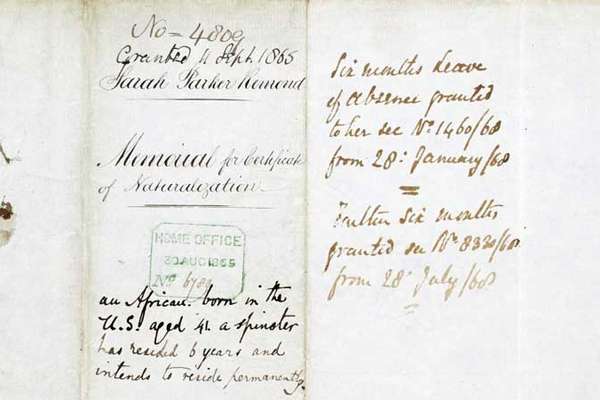 No = 4809
Granted 4 Sept. 1865
Sarah Parker Remond
Memorial for Certificate
of Naturalization
HOME OFFICE
30 AUG 1865
No
an African born in the
U.S. aged 41 a spinster
has resided 6 years and
intends to reside permanently.
Six months Leave
of absence granted
to her see No. 1460/68
from 28: January/68
Further Six months
granted see No 8330/68
from 28' July/68